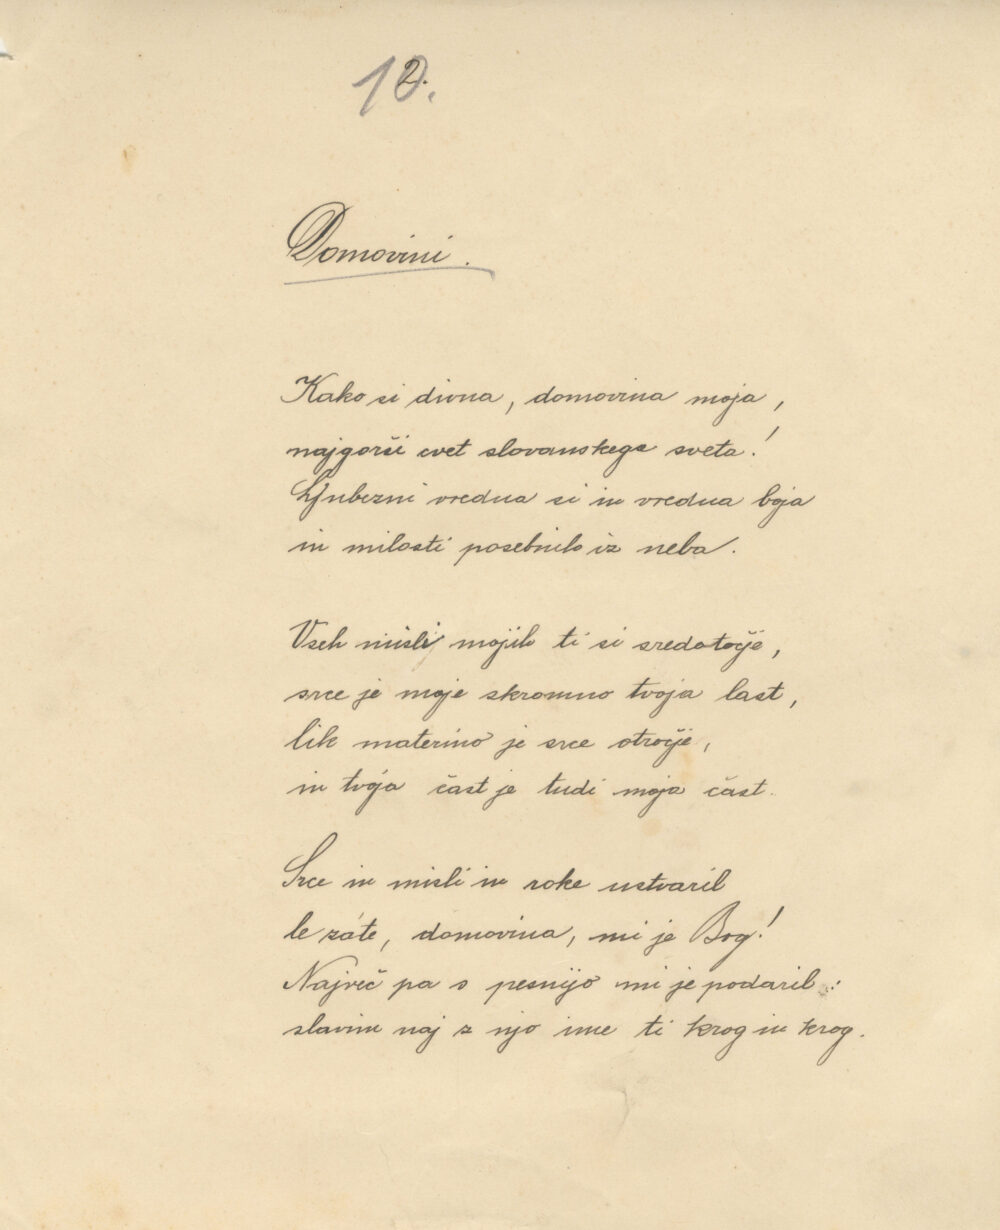 10.
2.
Domovini.
Kako si divna, domovina moja,
najgorši cvet slovanskega sveta!
Ljubezni vredna si in vredna boja
in milosti posebnih iz neba.
Vseh misli mojih ti si središče,
srce je moje skromno tvoja last,
lik materino je srce otročje,
in tvoja čast je tudi moja čast.
Srce in misli in roke ustvaril
le záte, domovina, mi je Bog!
Največ pa s pesnijo mi je podaril:
slavim naj z njo ime ti krog in krog.